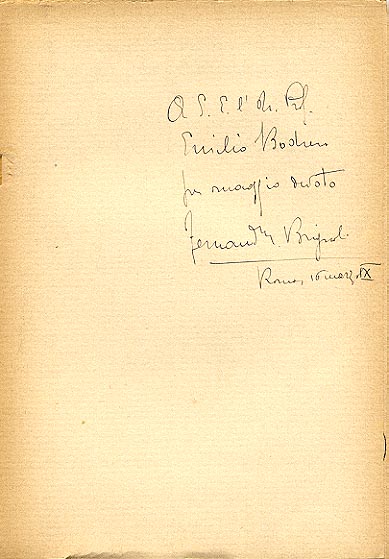 A S. E. l'On. Prof.
Emilio Bodrero
per omaggio devoto
Fernando Brignoli
Roma, 16 marzo IX